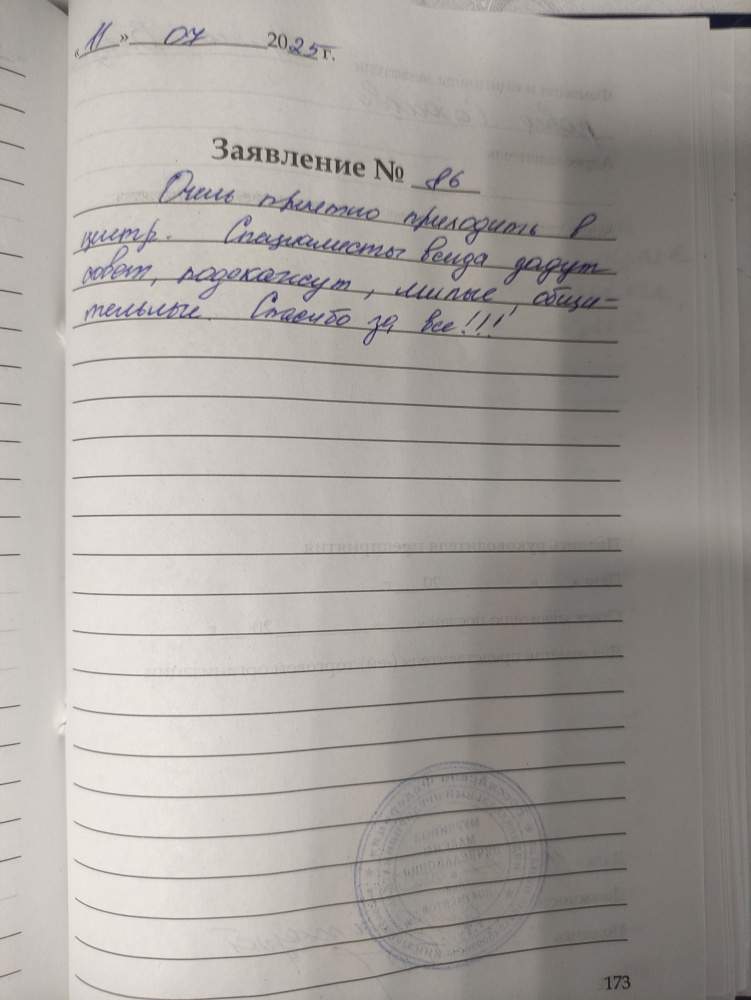 «11» 07 2025 г.
Заявление № 86
Очень приятно приходить в
центр. Специалисты всегда дадут
совет, подскажут, милые, общи-
тельные. Спасибо за все!!!
173